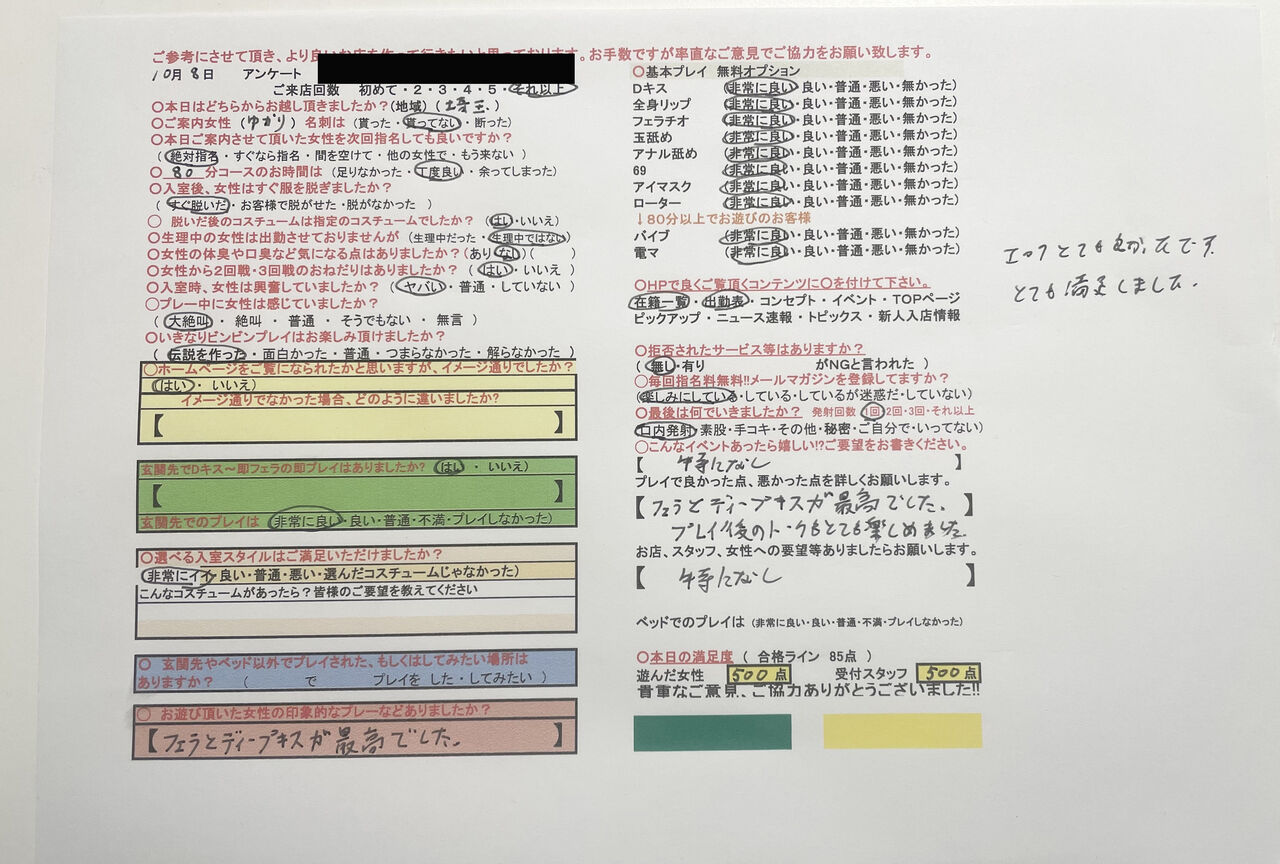 ご参考にさせて頂き、より良いお店を作って行きたいと思っております。お手数ですが率直なご意見でご協力をお願い致します。
10月8日 アンケート
ご来店回数 初めて・2・3・4・5・それ以上
〇本日はどちらからお越し頂きましたか?(地域)(埼玉)
〇ご案内女性(ゆかり)名刺は(貰った・貰ってない・断った)
〇本日ご案内させて頂いた女性を次回指名しても良いですか?
(絶対指名・すぐなら指名・間を空けて・他の女性で・もう来ない)
〇 80 分コースのお時間は(足りなかった・丁度良い・余ってしまった)
〇入室後、女性はすぐ服を脱ぎましたか?
(すぐ脱いだ・お客様で脱がせた・脱がなかった)
〇 脱いだ後のコスチュームは指定のコスチュームでしたか?(はい・いいえ)
〇生理中の女性は出勤させておりませんが(生理中だった・生理中ではない)
〇女性の体臭や口臭など気になる点はありましたか?(あり・なし)( )
〇女性から2回戦・3回戦のおねだりはありましたか?(はい・いいえ)
〇入室時、女性は興奮していましたか?(ヤバい・普通・していない)
〇プレー中に女性は感じていましたか?
(大絶叫・絶叫・普通・そうでもない・無言)
〇いきなりビンビンプレイはお楽しみ頂けましたか?
(伝説を作った・面白かった・普通・つまらなかった・解らなかった)
〇ホームページをご覧になられたかと思いますが、イメージ通りでしたか?
(はい・いいえ)
イメージ通りでなかった場合、どのように違いましたか?
【 】
玄関先でDキス～即フェラの即プレイはありましたか?(はい・いいえ)
【 】
玄関先でのプレイは(非常に良い・良い・普通・不満・プレイしなかった)
〇選べる入室スタイルはご満足いただけましたか?
(非常にイイ・良い・普通・悪い・選んだコスチュームじゃなかった)
こんなコスチュームがあったら?皆様のご要望を教えてください
〇 玄関先やベッド以外でプレイされた、もしくはしてみたい場所は
ありますか?( で プレイを した・してみたい)
〇 お遊び頂いた女性の印象的なプレーなどありましたか?
【フェラとディープキスが最高でした。】
〇基本プレイ 無料オプション
Dキス (非常に良い・良い・普通・悪い・無かった)
全身リップ (非常に良い・良い・普通・悪い・無かった)
フェラチオ (非常に良い・良い・普通・悪い・無かった)
玉舐め (非常に良い・良い・普通・悪い・無かった)
アナル舐め (非常に良い・良い・普通・悪い・無かった)
69 (非常に良い・良い・普通・悪い・無かった)
アイマスク (非常に良い・良い・普通・悪い・無かった)
ローター (非常に良い・良い・普通・悪い・無かった)
↓80分以上でお遊びのお客様
バイブ (非常に良い・良い・普通・悪い・無かった)
電マ (非常に良い・良い・普通・悪い・無かった)
〇HPで良くご覧頂くコンテンツに〇を付けて下さい。
在籍一覧・出勤表・コンセプト・イベント・TOPページ
ピックアップ・ニュース速報・トピックス・新人入店情報
〇拒否されたサービス等はありますか?
(無し・有り がNGと言われた)
〇毎回指名料無料!!メールマガジンを登録してますか?
(楽しみにしている・している・しているが迷惑だ・していない)
〇最後は何でいきましたか? 発射回数 1回・2回・3回・それ以上
(口内発射・素股・手コキ・その他・秘密・ご自分で・いってない)
〇こんなイベントあったら嬉しい!?ご要望をお書きください。
【 特になし 】
プレイで良かった点、悪かった点を詳しくお願いします。
【フェラとディープキスが最高でした。】
プレイ後のトークもとても楽しめました
お店、スタッフ、女性への要望等ありましたらお願いします。
【 特になし 】
ベッドでのプレイは(非常に良い・良い・普通・不満・プレイしなかった)
〇本日の満足度(合格ライン 85点)
遊んだ女性 500点 受付スタッフ 500点
貴重なご意見、ご協力ありがとうございました!!
とても良かったです。
とても満足しました。